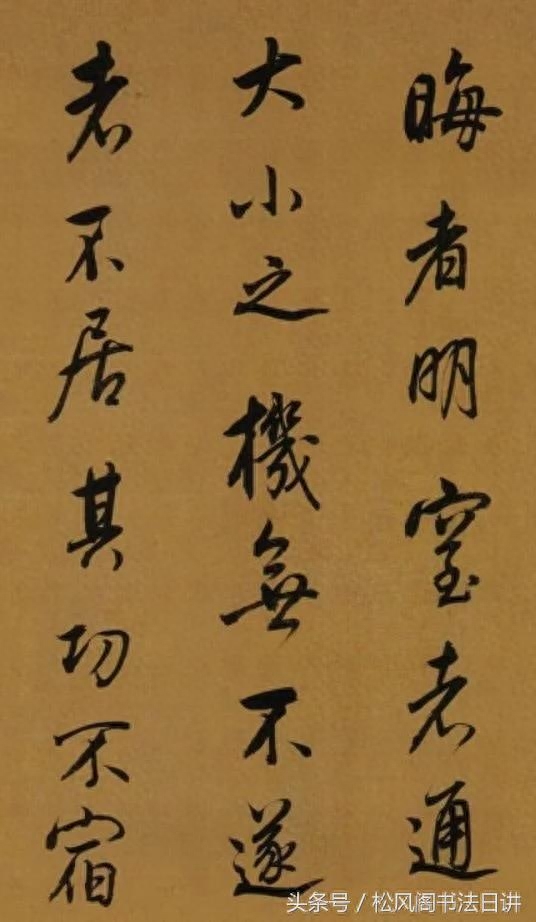 晦者明窒者通
大小之機無不遂
者不居其功不宿
头条号／松风阁书法日讲